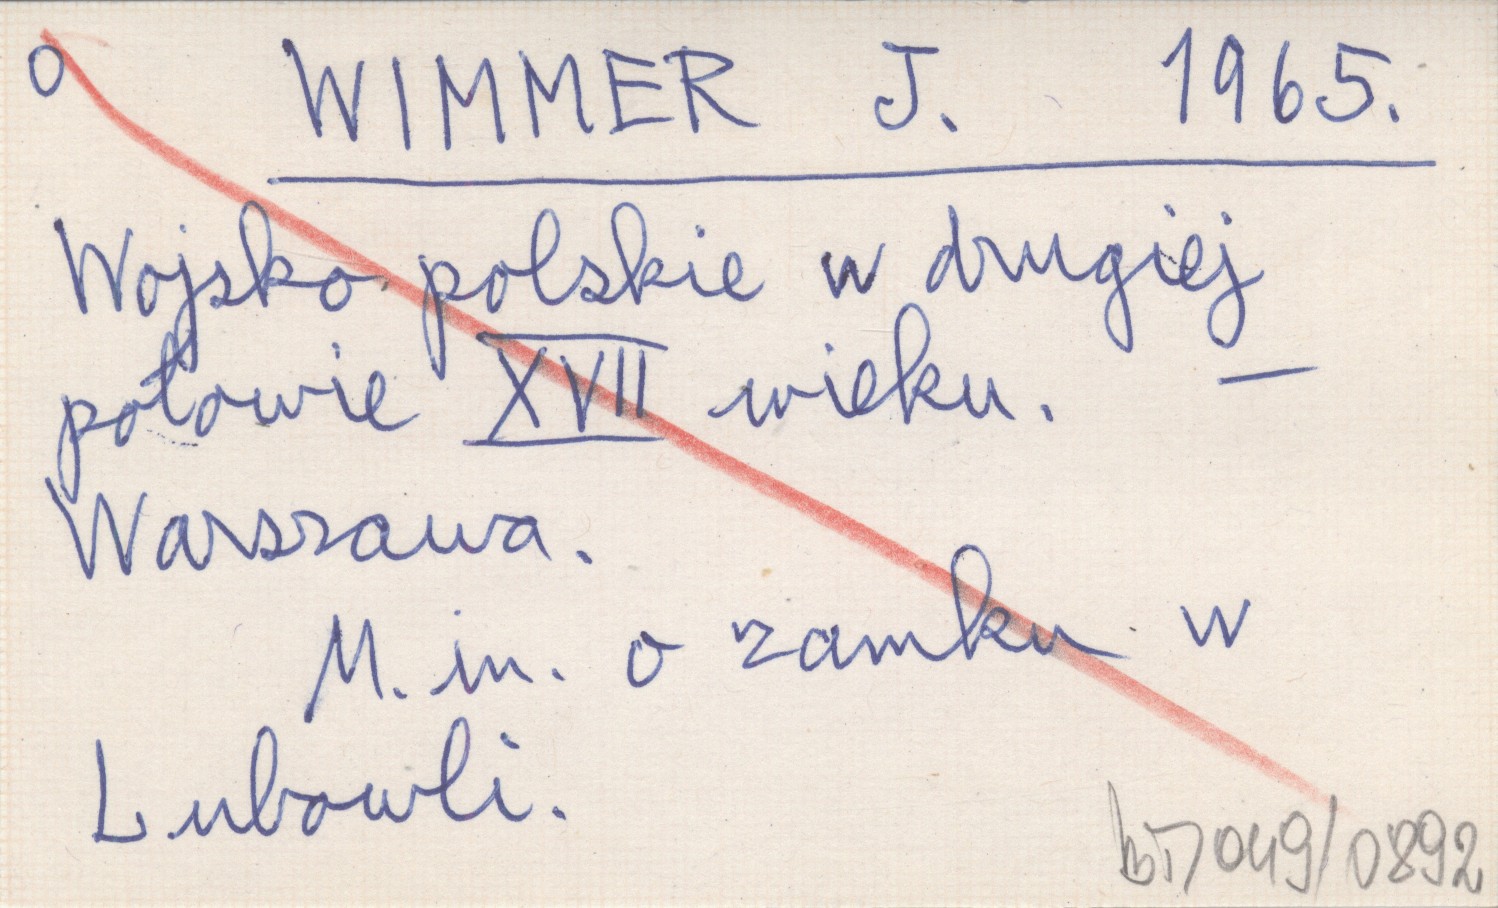 o WIMMER J. 1965.
Wojsko polskie w drugiej
połowie XVII wieku. —
Warszawa.
M. in. o zamku w
Lubowli.
049/0892